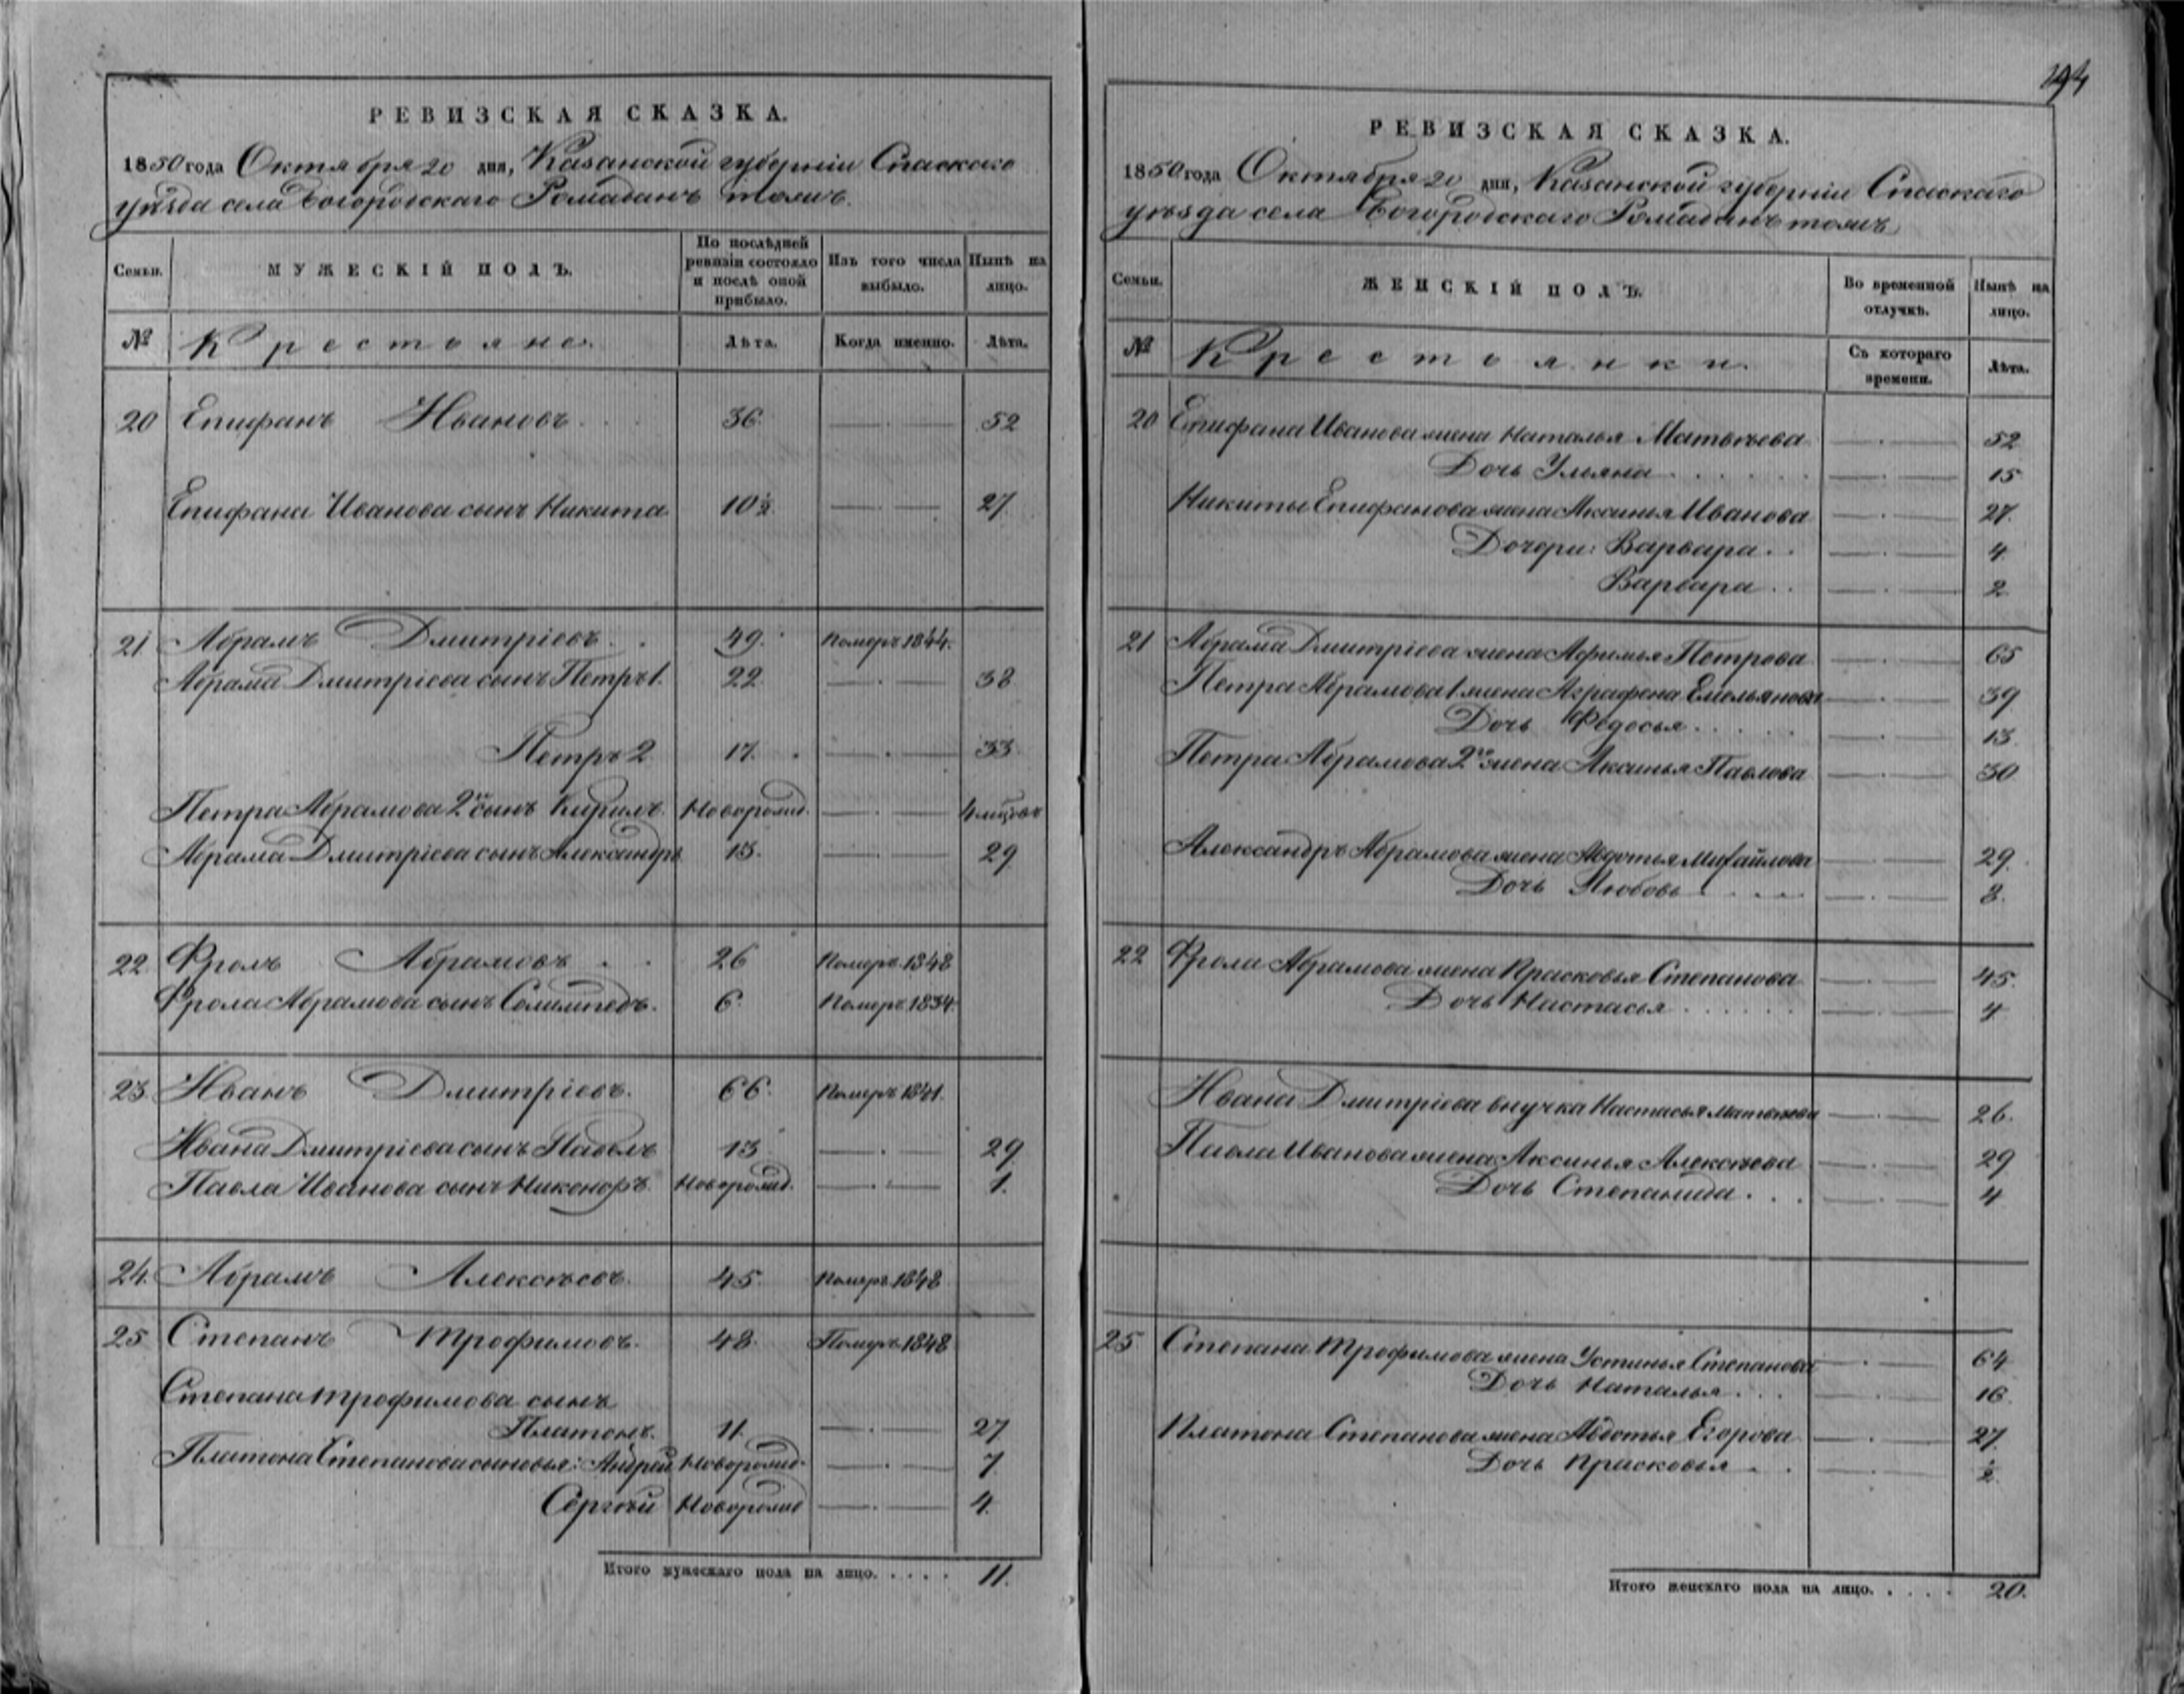 194
РЕВИЗСКАЯ СКАЗКА.
1850 года Октября 20 дня, Казанской губерніи Спаскаго
уѣзда села Богородскаго Ромадань тожъ.
Семьи. МУЖЕСКІЙ ПОЛЪ. По послѣдней ревизіи состояло и послѣ оной прибыло. Изъ того числа выбыло. Нынѣ на лицо.
№ Крестьяне. Лѣта. Когда именно. Лѣта.
20 Епифанъ Ивановъ . . . 36. —·— 52
Епифана Иванова сынъ Никита 10½ —·— 27
21 Абрамъ Дмитріевъ . . 49. Померъ 1844.
Абрама Дмитріева сынъ Петръ 1. 22. —·— 38
Петръ 2 17. —·— 33.
Петра Абрамова 2го сынъ Кирилъ. Новорожд. —·— 4 мцовъ
Абрама Дмитріева сынъ Александръ 13. —·— 29
22. Фролъ Абрамовъ . . 26 Померъ 1848
Фрола Абрамова сынъ 6. Померъ 1834.
23 Иванъ Дмитріевъ. 66. Померъ 1841.
Ивана Дмитріева сынъ Павелъ 13 —·— 29
Павла Иванова сынъ Никоноръ. Новорожд. —·— 1.
24. Абрамъ Алексѣевъ. 45. Померъ 1848
25 Степанъ Трофимовъ. 48. Померъ 1848
Степана Трофимова сынъ
Платонъ. 11. —·— 27
Платона Степанова сыновья: Андрей Новорожд. —·— 7
Сергѣй Новорожд —·— 4.
Итого мужескаго пола на лицо. . . . . 11.
РЕВИЗСКАЯ СКАЗКА.
1850 года Октября 20 дня, Казанской губерніи Спаскаго
уѣзда села Богородскаго Ромадань тожъ
Семьи. ЖЕНСКІЙ ПОЛЪ. Во временной отлучкѣ. Нынѣ на лицо.
№ Крестьянки. Съ котораго времени. Лѣта.
20 Епифана Иванова жена Наталья Матвѣева —·— 52
Дочь Ульяна . . . . . —·— 15
Никиты Епифанова жена Аксинья Иванова —·— 27.
Дочери: Варвара . . —·— 4.
Варвара . . —·— 2
21 Абрама Дмитріева жена Афимья Петрова —·— 65
Петра Абрамова 1 жена Аграфена Емельянова —·— 39
Дочь Федосья . . . . —·— 13.
Петра Абрамова 2го жена Аксинья Павлова —·— 30
Александръ Абрамова жена Авдотья Михайлова —·— 29.
Дочь Любовь . . . . —·— 8.
22 Фрола Абрамова жена Прасковья Степанова —·— 45.
Дочь Настасья . . . . . . —·— 4
Ивана Дмитріева внучка Настасья Матвѣева —·— 26.
Павла Иванова жена Аксинья Алексѣева —·— 29
Дочь Степанида . . . —·— 4
25 Степана Трофимова жена Устинья Степанова —·— 64
Дочь Наталья . . . —·— 16.
Платона Степанова жена Авдотья Егорова —·— 27.
Дочь Прасковья . . —·— ½
Итого женскаго пола на лицо. . . . . 20.